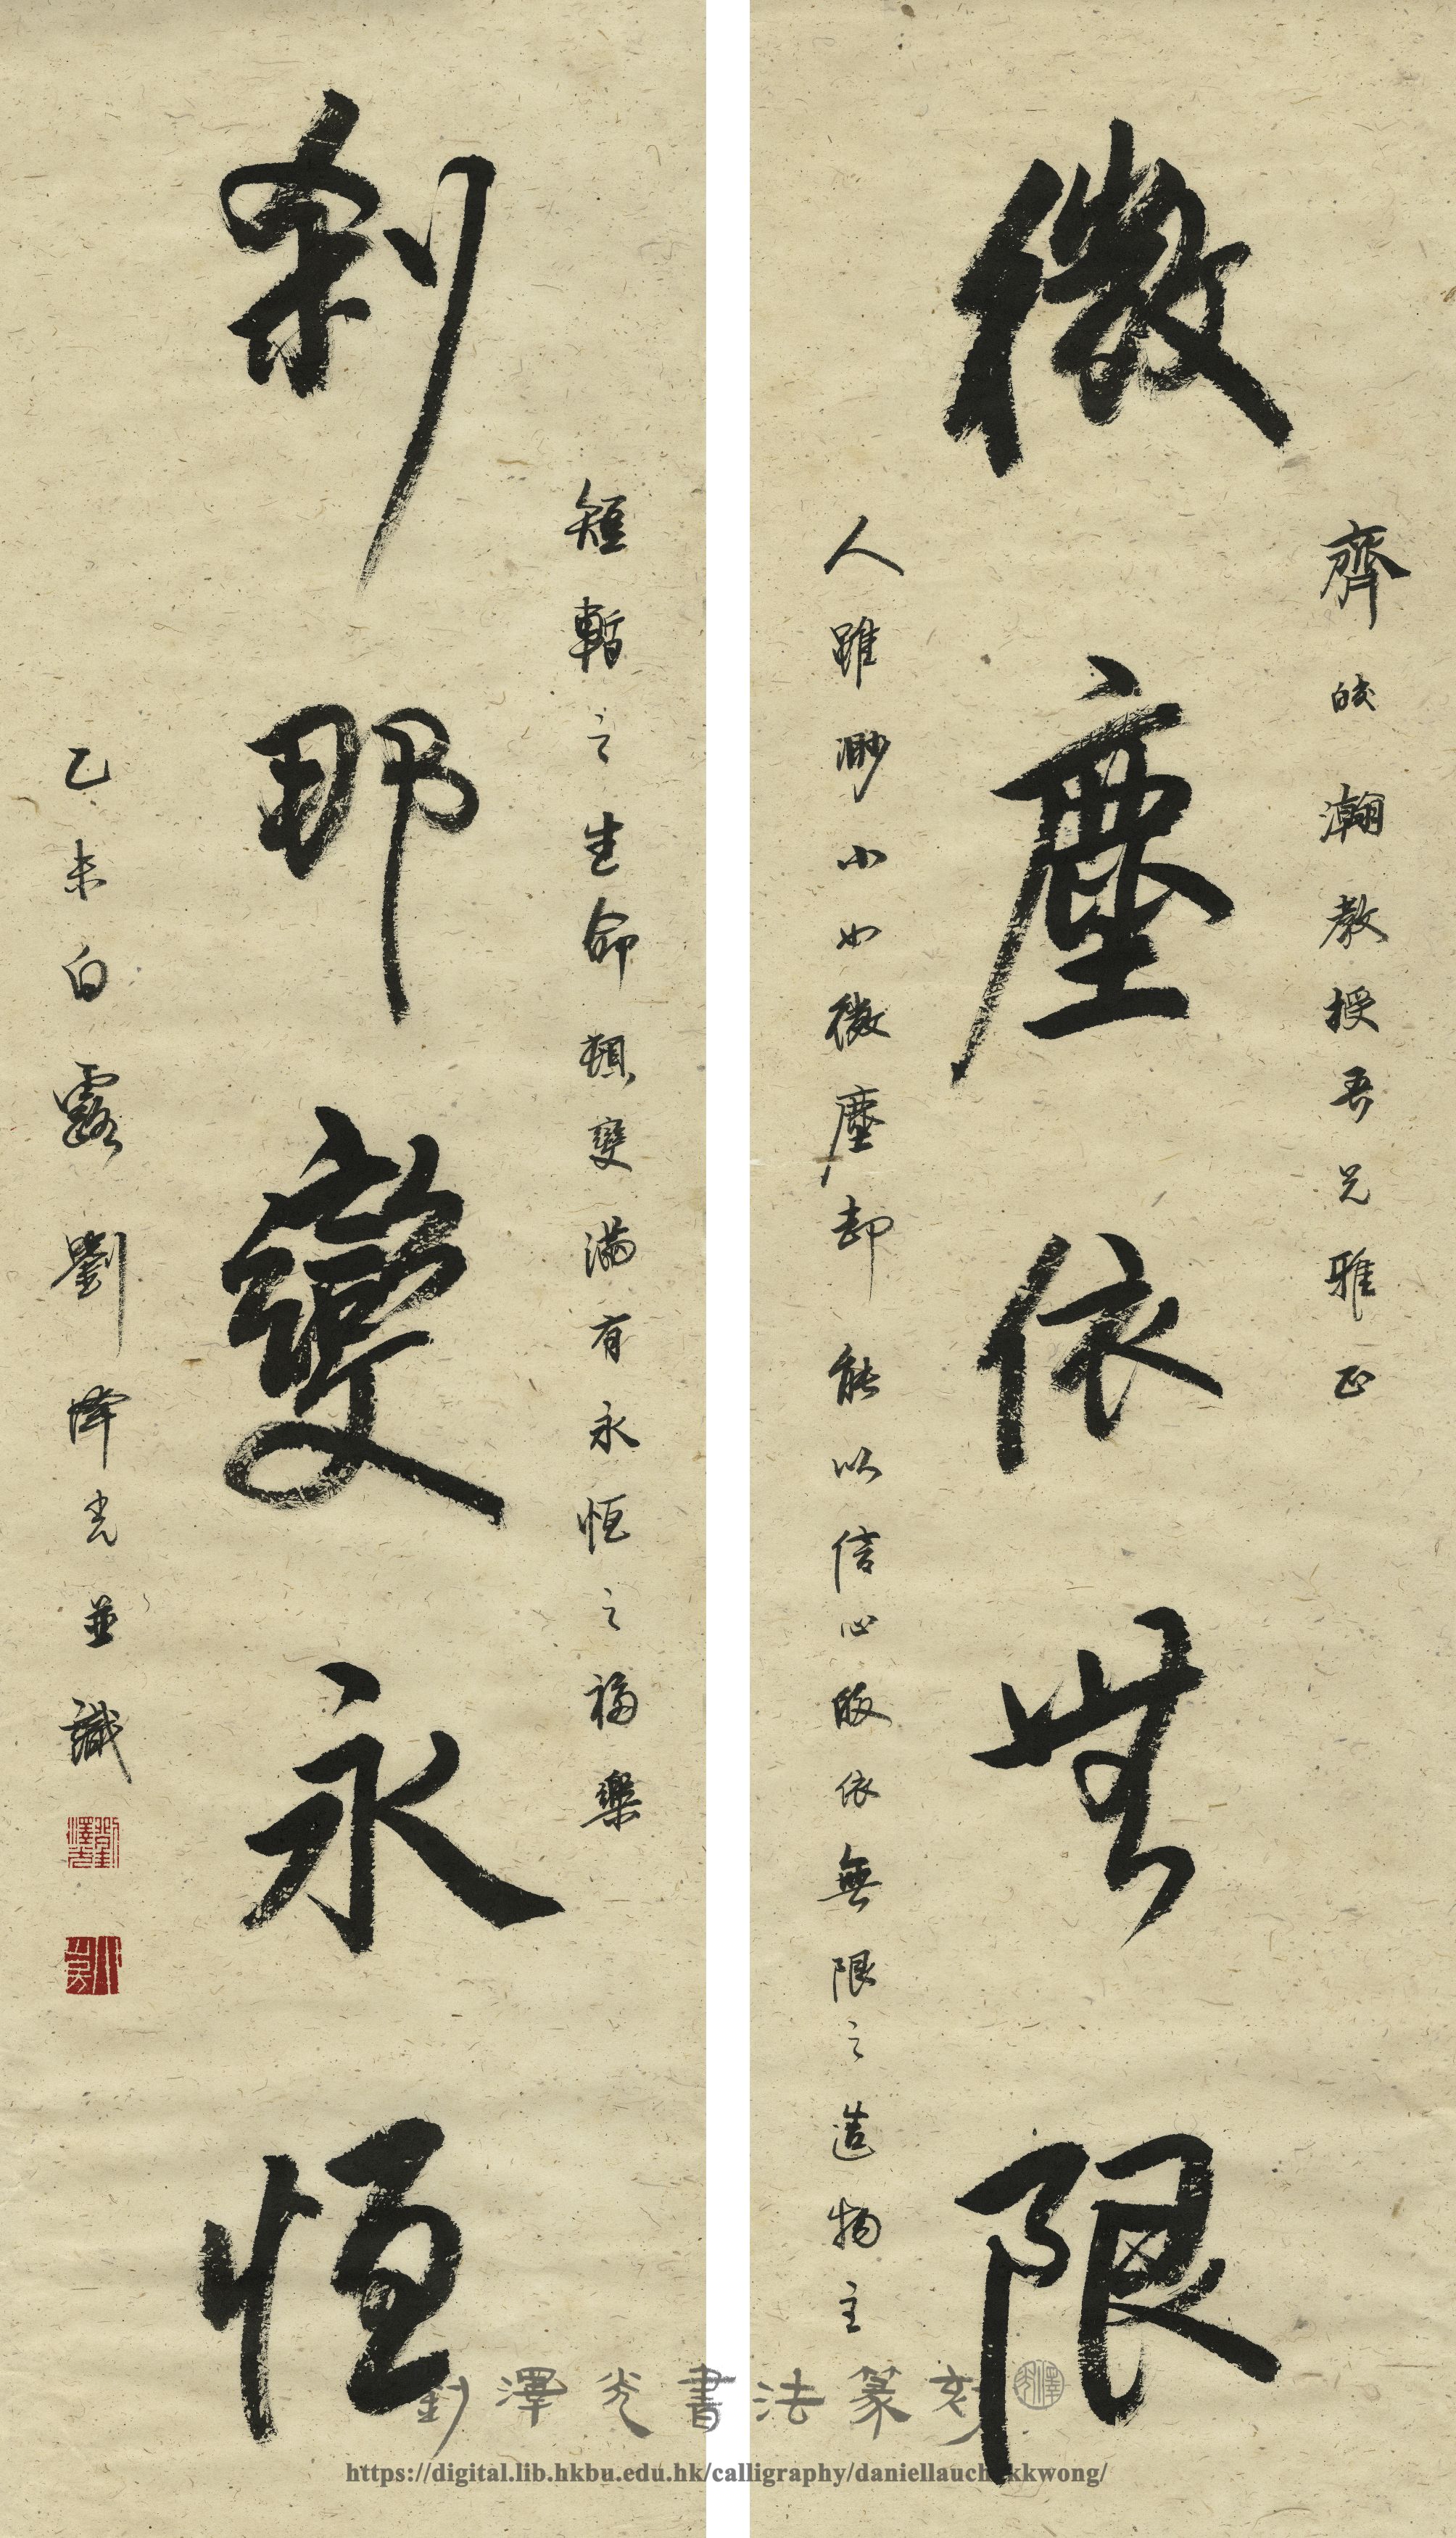 齊皎瀚教授吾兄雅正
微塵依無限
人雖渺小如微塵却能以信心皈依無限之造物主
短暫之生命頓變滿有永恒之福樂
剎那變永恒
乙未白露劉澤光並識
劉澤光書法篆刻
https://digital.lib.hkbu.edu.hk/calligraphy/daniellauchakkwong/